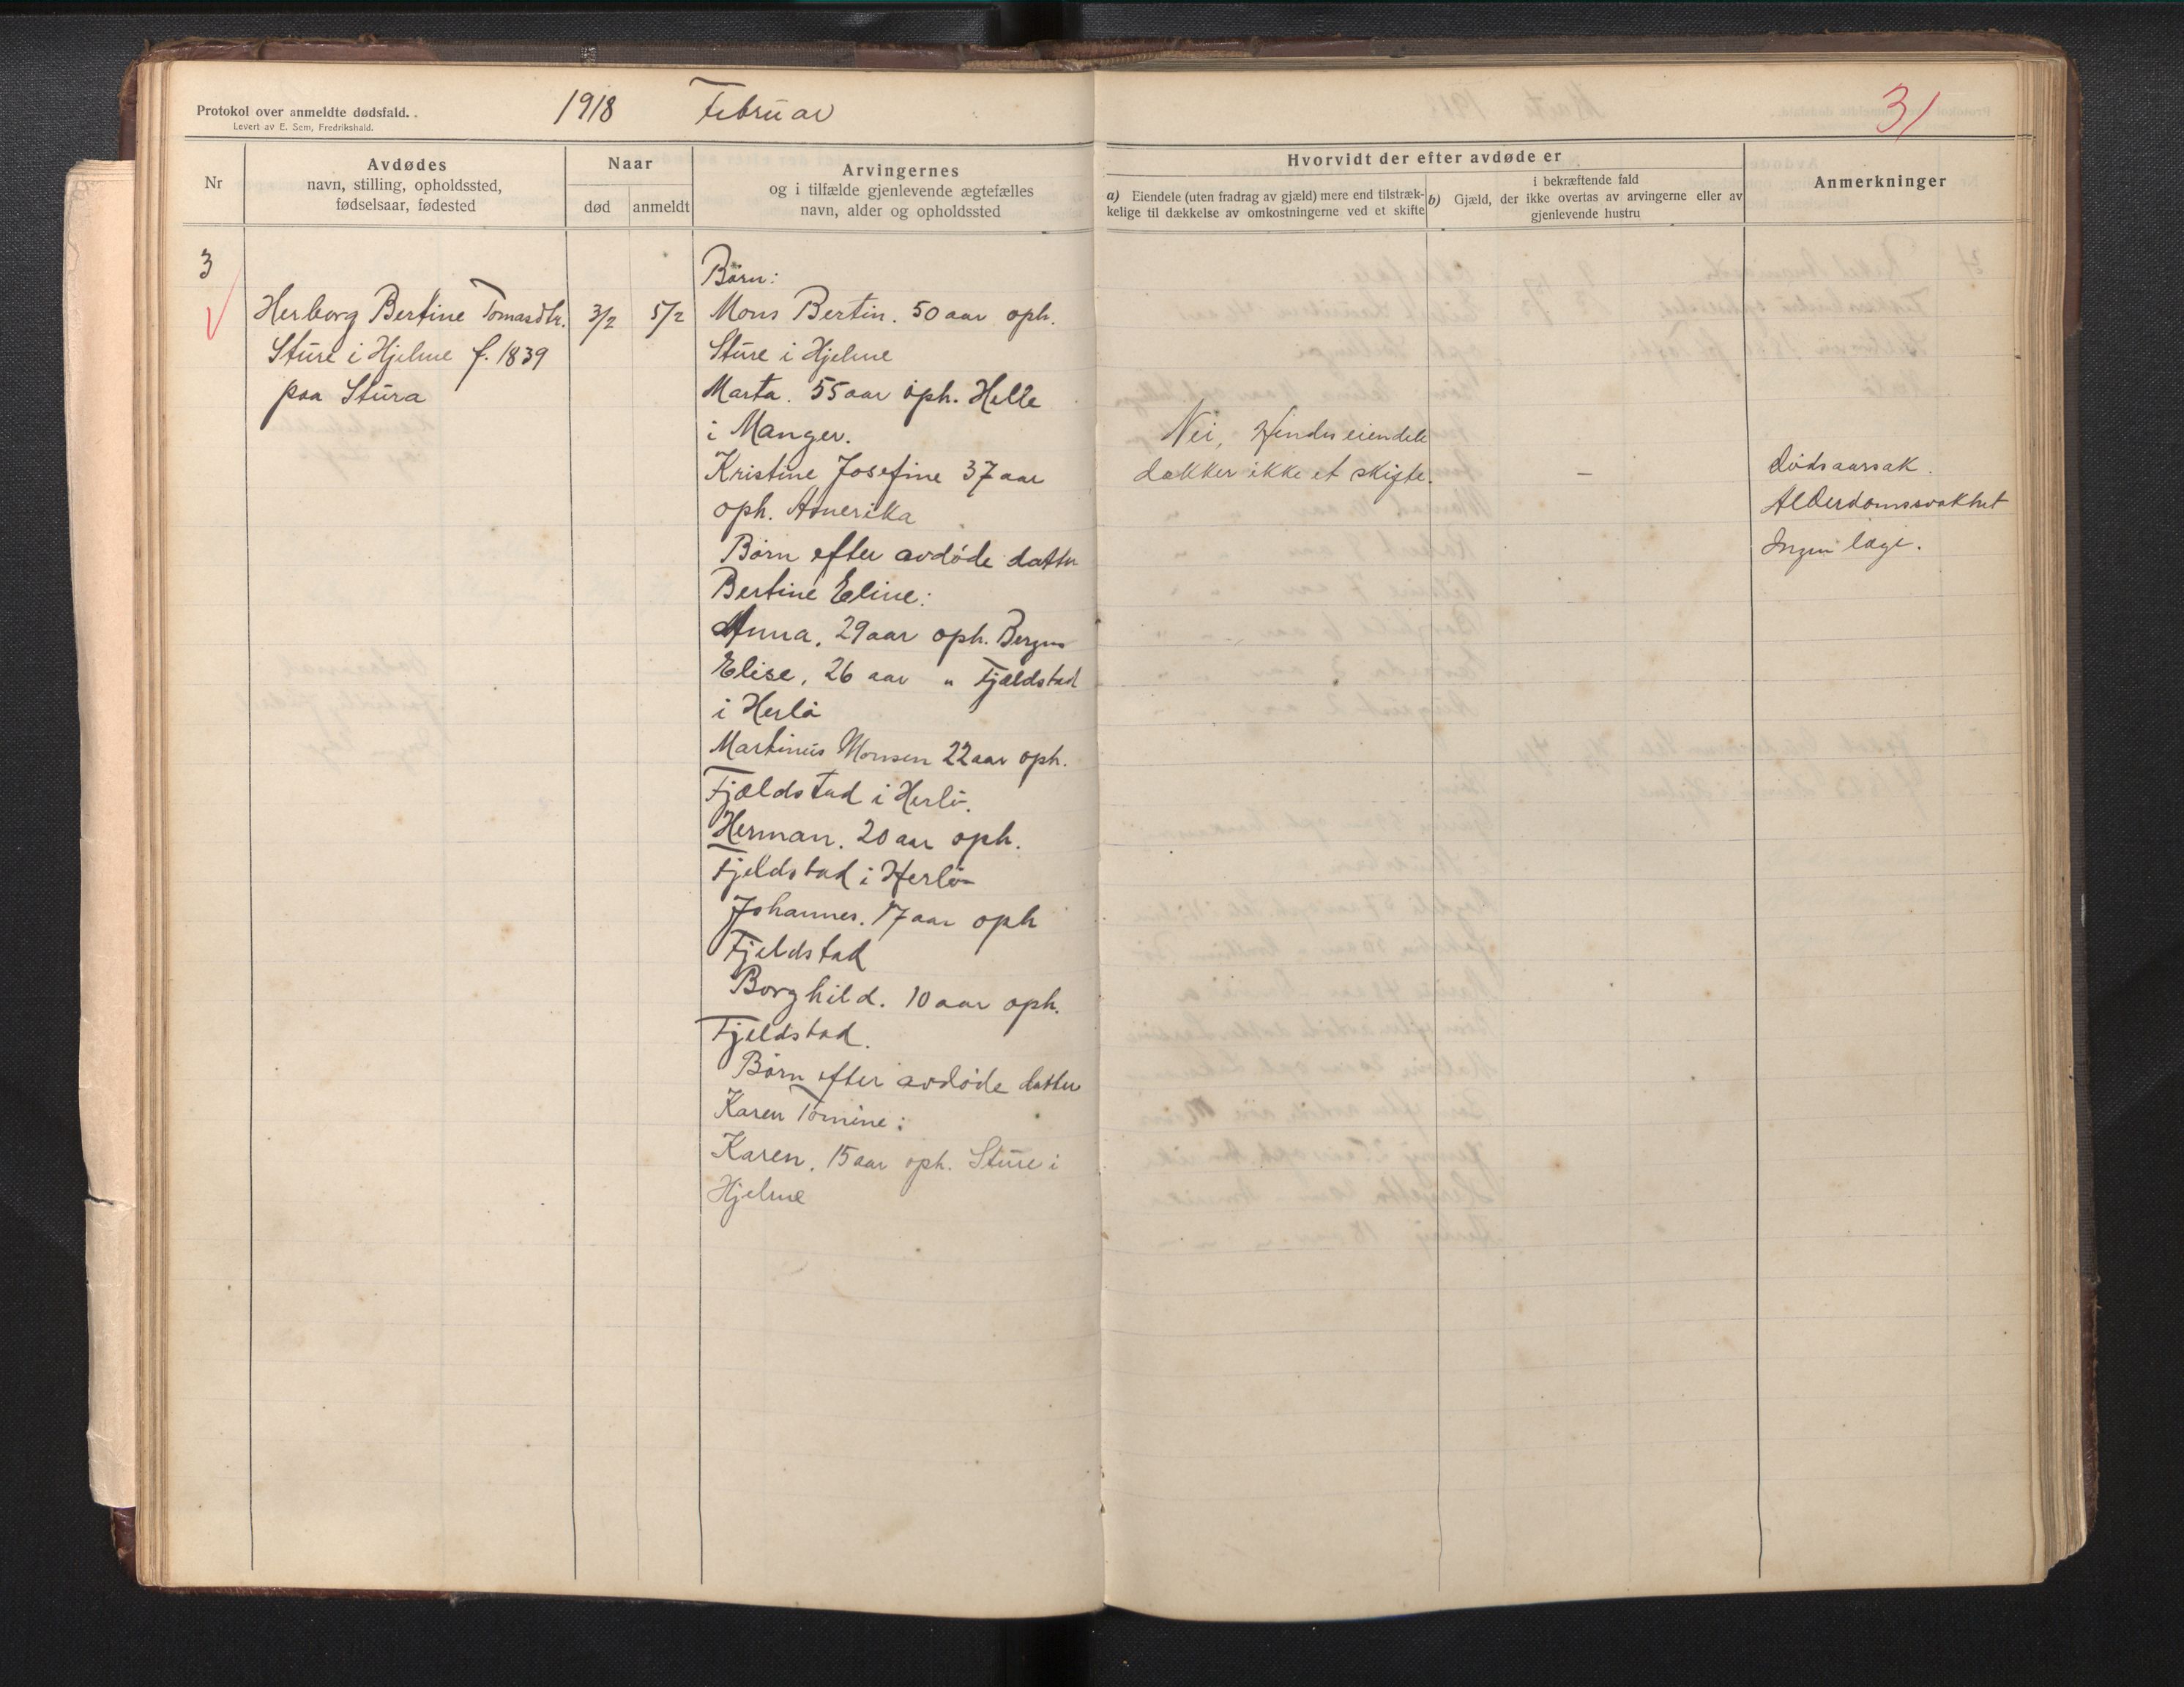 Protokol over anmeldte dødsfald.
Levert av E. Sem, Fredrikshald.
1918 Februar
31
Nr
Avdødes
navn, stilling, opholdssted,
fødselsaar, fødested
Naar
død
anmeldt
Arvingernes
og i tilfælde gjenlevende ægtefælles
navn, alder og opholdssted
Hvorvidt der efter avdøde er
a) Eiendele (uten fradrag av gjæld) mere end tilstræk-
kelige til dækkelse av omkostningerne ved et skifte
i bekræftende fald
b) Gjæld, der ikke overtas av arvingerne eller av
gjenlevende hustru
Anmerkninger
3
Herborg Bertine Tomasdtr.
Sture i Hjelme f. 1839
paa Stura
3/2
5/2
Børn:
Mons Bertin. 50 aar oph.
Sture i Hjelme
Marta. 55 aar oph. Helle
i Manger.
Kristine Josefine 37 aar
oph. Amerika
Børn efter avdøde datter
Bertine Eline:
Anna, 29 aar oph. Bergen
Elise, 26 aar " Fjældstad
i Herlø
Martinus Monsen 22 aar oph.
Fjældstad i Herlø.
Herman. 20 aar oph.
Fjeldstad i Herlø
Johannes. 17 aar oph
Fjeldstad
Borghild. 10 aar oph.
Fjeldstad.
Børn efter avdøde datter
Karen Tomine:
Karen, 15 aar oph. Sture i
Hjelme
Nei, Hendes eiendele
dækker ikke et skifte.
—
Dødsaarsak.
Alderdomssvakhet
Ingen læge.